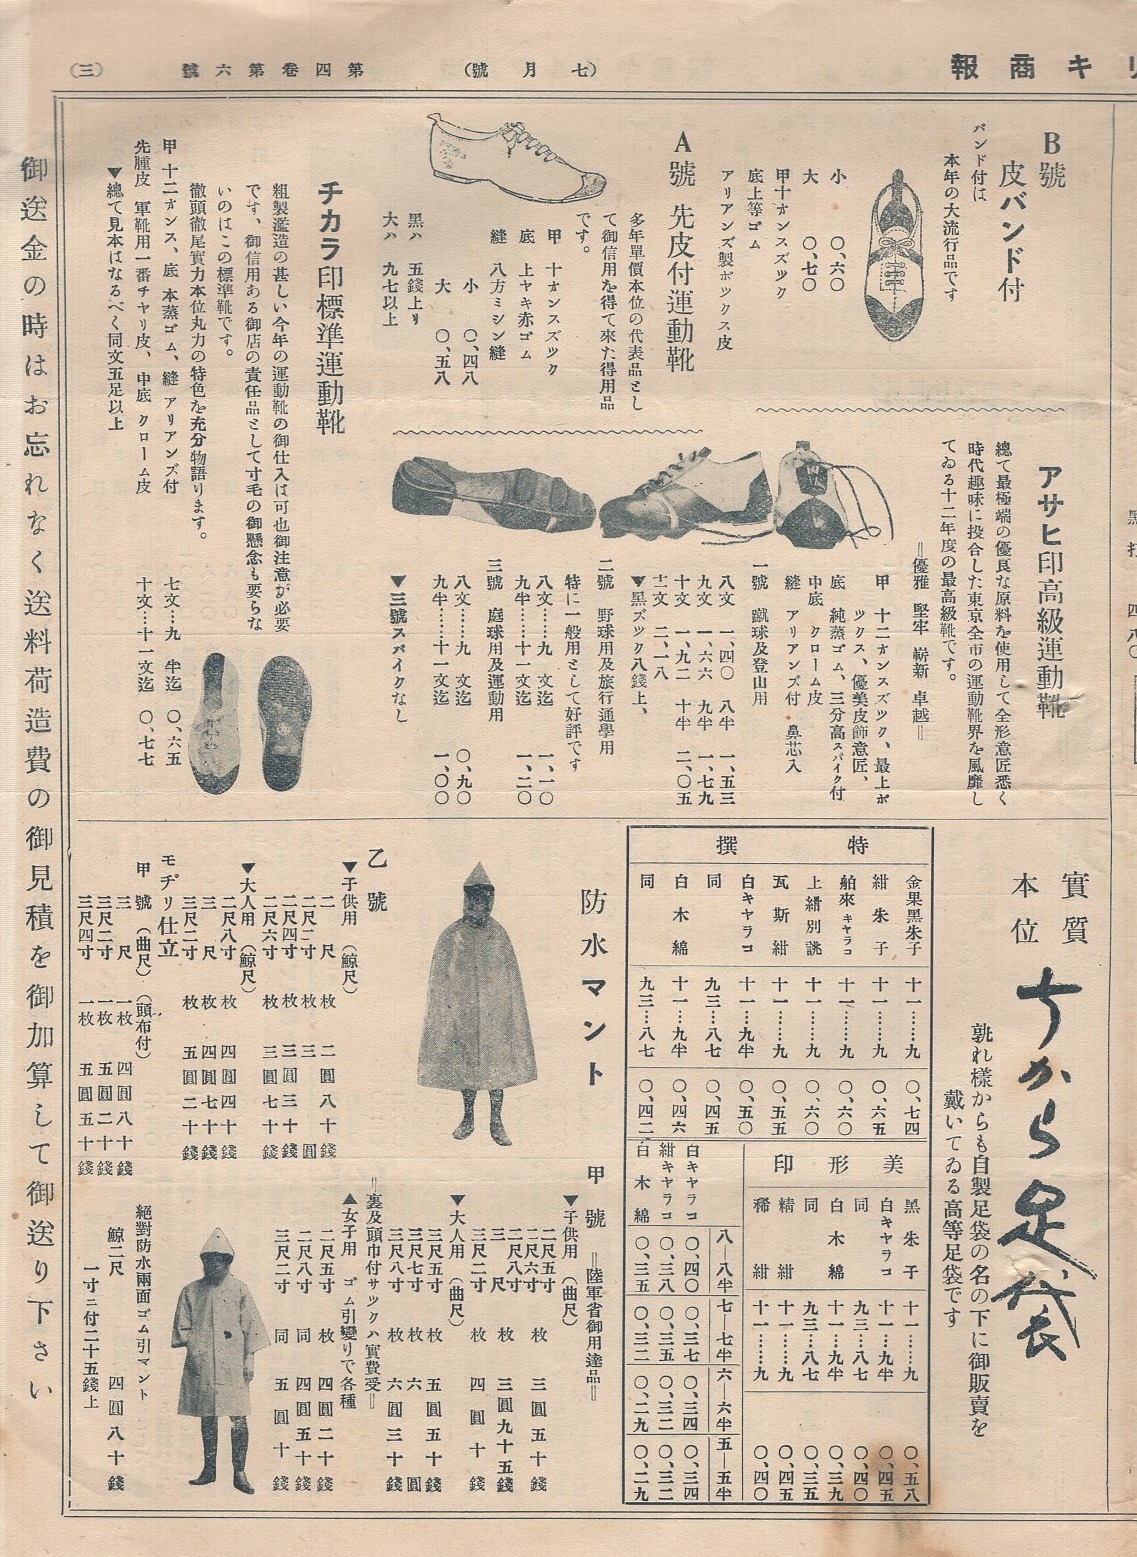 リキ商報
（七月號）
第四卷第六號
（三）
B號
皮バンド付
バンド付は
本年の大流行品です
小 〇、六〇
大 〇、七〇
甲十オンスズック
底上等ゴム
アリアンズ製ボックス皮
A號 先皮付運動靴
多年單價本位の代表品とし
て御信用を得て來た得用品
です。
甲 十オンスズック
底 上ヤキ赤ゴム
縫 八方ミシン縫
小 〇、四八
大 〇、五八
黑ハ 五錢上り
大ハ 九七以上
チカラ印標準運動靴
粗製濫造の甚しい今年の運動靴の御仕入は可也御注意が必要
です、御信用ある御店の責任品として寸毛の御懸念も要らな
いのはこの標準靴です。
徹頭徹尾實力本位丸力の特色を充分物語ります。
甲 十二オンス、底 本蒸ゴム、縫 アリアンズ付
先腫皮 軍靴用一番チャリ皮、中底 クローム皮
▼總て見本はなるべく同文五足以上
七文…九 半迄 〇、六五
十文…十一文迄 〇、七七
アサヒ印高級運動靴
總て最極端の優良な原料を使用して全形意匠悉く
時代趣味に投合した東京全市の運動靴界を風靡し
てゐる十二年度の最高級靴です。
＝優雅 堅牢 嶄新 卓越＝
甲 十二オンスズック、最上ボ
ックス、優美皮飾意匠、
底 純蒸ゴム、三分高スパイク付
中底 クローム皮
縫 アリアンズ付 鼻芯入
一號 蹴球及登山用
八文 一、四〇 八半 一、五三
九文 一、六六 九半 一、七九
十文 一、九二 十半 二、〇五
十一文 二、一八
▼黑ズック八錢上、
二號 野球用及旅行通學用
特に一般用として好評です
八文……九 文迄 一、一〇
九半……十一文迄 一、二〇
三號 庭球用及運動用
八文……九 文迄 〇、九〇
九半……十一文迄 一、〇〇
▼三號スパイクなし
實質
本位
ちから足袋
孰れ樣からも自製足袋の名の下に御販賣を
戴いてゐる高等足袋です
特撰
金果黑朱子 十一……九 〇、七四
紺朱子 十一……九 〇、六五
舶來キャラコ 十一……九 〇、六〇
上繻別誂 十一……九 〇、六〇
瓦斯紺 十一……九 〇、五五
白キャラコ 十一…九半 〇、五〇
同 九三…八七 〇、四五
白木綿 十一…九半 〇、四六
同 九三…八七 〇、四二
美形印
黑朱子 十一……九 〇、五八
白キャラコ 十一…九半 〇、四五
同 九三…八七 〇、四〇
白木綿 十一…九半 〇、三九
同 九三…八七 〇、三五
精紺 十一……九 〇、四五
稀紺 十一……九 〇、四〇
八―八半 七―七半 六―六半 五―五半
白キャラコ 〇、四〇 〇、三七 〇、三四 〇、三四
紺キャラコ 〇、三八 〇、三五 〇、三二 〇、三二
白木綿 〇、三五 〇、三二 〇、二九 〇、二九
防水マント
甲號 ＝陸軍省御用達品＝
▼子供用（曲尺）
二尺五寸
二尺六寸 枚 三圓五十錢
二尺八寸
三尺 枚 三圓九十五錢
三尺二寸 枚 四圓十錢
▼大人用（曲尺）
三尺五寸 枚 五圓五十錢
三尺七寸 枚 六圓
三尺八寸 枚 六圓三十錢
＝裏及頭巾付サックハ實費受＝
▲女子用 ゴム引變りで各種
二尺五寸 枚 四圓二十錢
二尺八寸 同 四圓五十錢
三尺二寸 同 五圓十錢
乙號
▼子供用（鯨尺）
二尺 枚 二圓八十錢
二尺二寸 枚 三圓
二尺四寸 枚 三圓三十錢
二尺六寸 枚 三圓七十錢
▼大人用（鯨尺）
二尺八寸 枚 四圓四十錢
三尺 枚 四圓七十錢
三尺二寸 枚 五圓二十錢
モヂリ仕立
甲號（曲尺）（頭布付）
三尺 一枚 四圓八十錢
三尺二寸 一枚 五圓二十錢
三尺四寸 一枚 五圓五十錢
絕對防水兩面ゴム引マント
鯨二尺 四圓八十錢
一寸ニ付二十五錢上
御送金の時はお忘れなく送料荷造費の御見積を御加算して御送り下さい